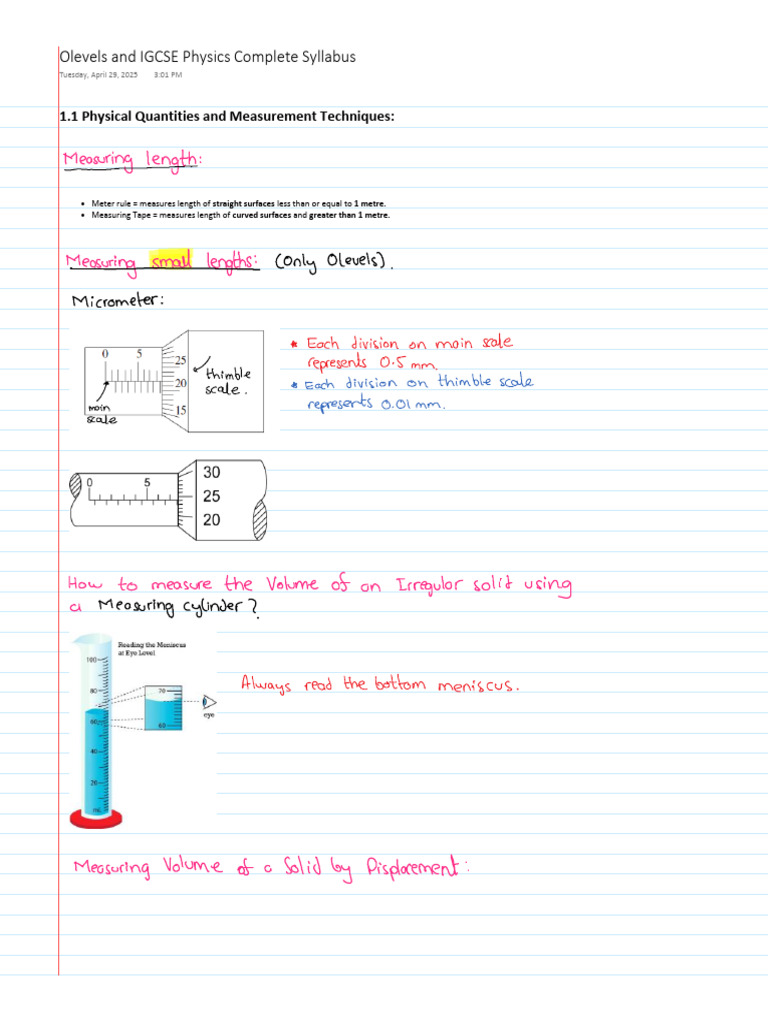 Olevels and IGCSE Physics Complete Syllabus
Tuesday, April 29, 2025 3:01 PM
1.1 Physical Quantities and Measurement Techniques:
Measuring length:
• Meter rule = measures length of straight surfaces less than or equal to 1 metre.
• Measuring Tape = measures length of curved surfaces and greater than 1 metre.
Measuring small lengths: (Only Olevels).
Micrometer:
0 5
25
20
15
thimble
scale.
main
scale
* Each division on main scale
represents 0.5 mm.
* Each division on thimble scale
represents 0.01 mm.
0 5
30
25
20
How to measure the Volume of an Irregular solid using
a Measuring cylinder?
Reading the Meniscus
at Eye Level
100
80
60
40
20
mL
70
60
eye
Always read the bottom meniscus.
Measuring Volume of a Solid by Displacement: